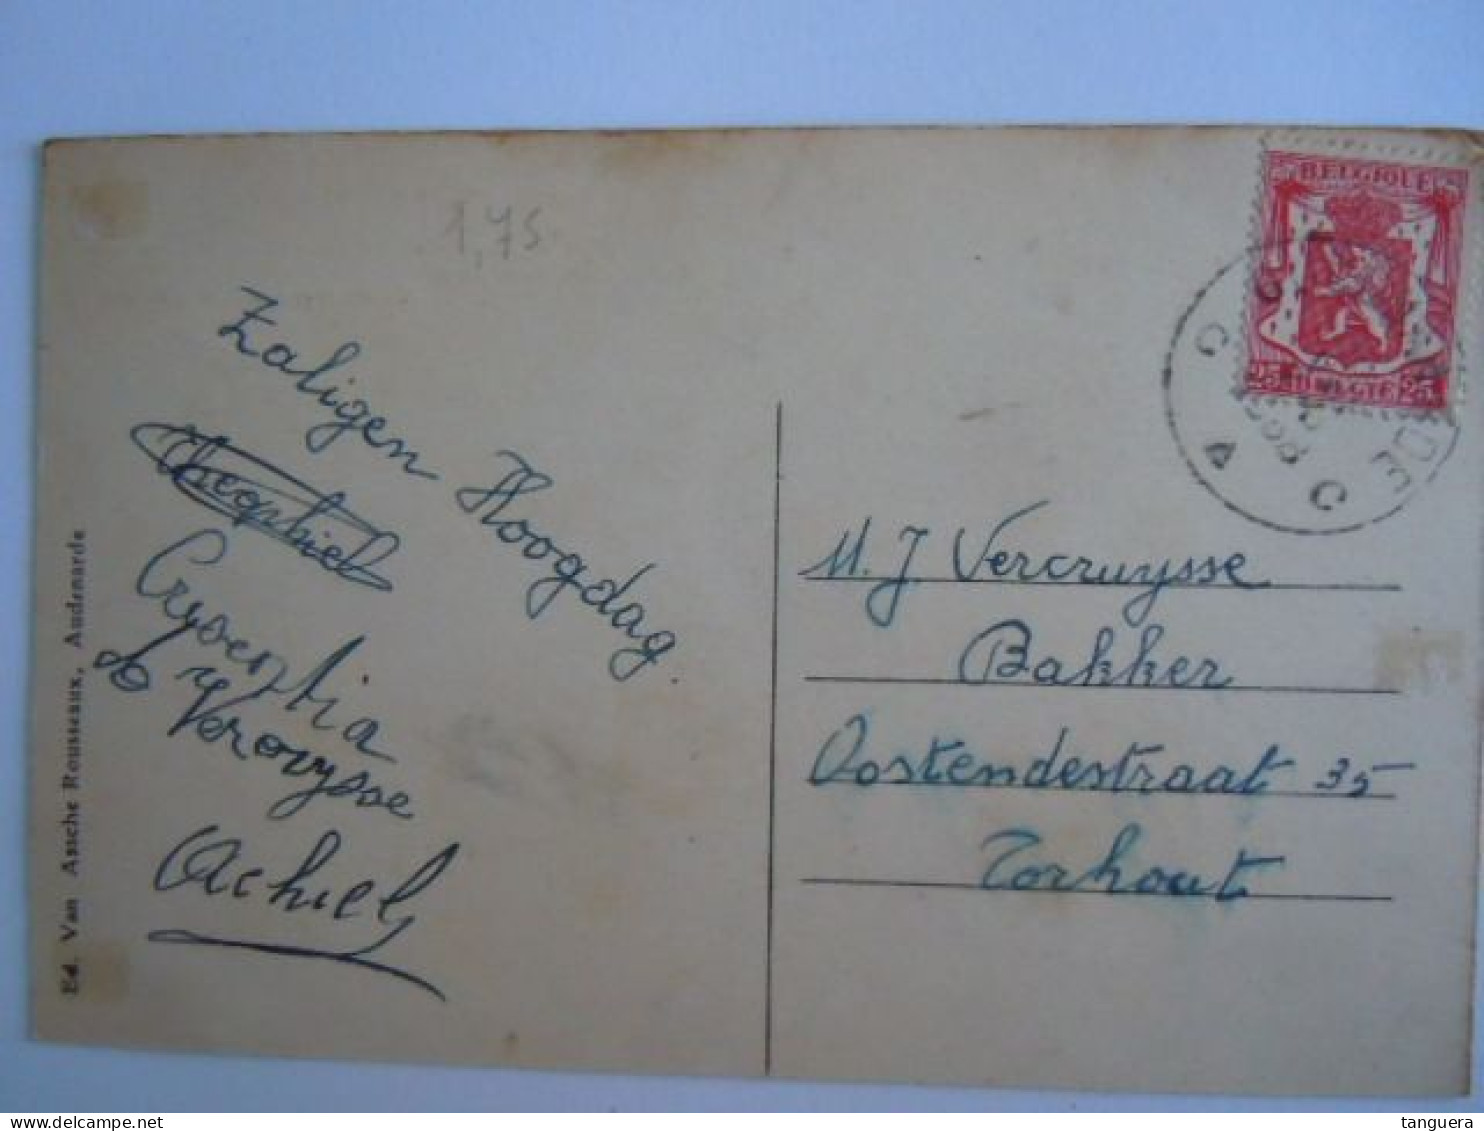 1,75
BELGIQUE
25 BELGIE 25
Zaligen Hoogdag.
Crysentia
Achiel
M. J Vercruysse
Bakker
Oostendestraat 35
Torhout
Ed. Van Assche Rousseaux, Audenarde
www.delcampe.net
tanguera